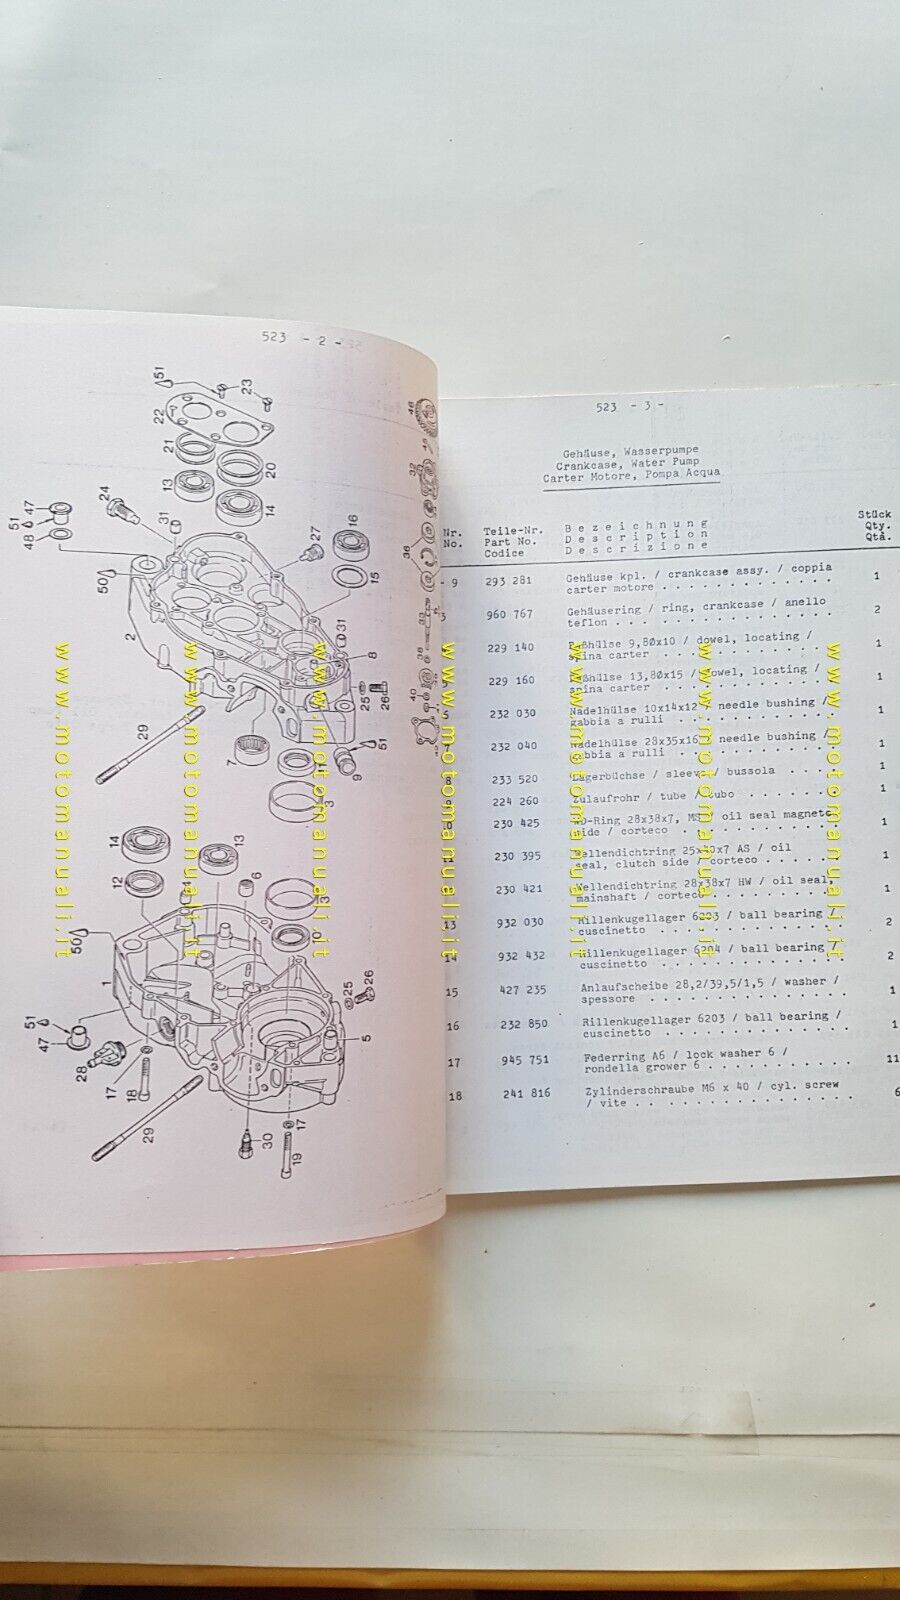 523 - 2 -
51
23
22
21
20
13
14
24
31
51
47
48
27
16
15
50
2
31
8
25
26
29
7
11
51
9
3
46
45
32
36
33
38
40
14
12
13
6
4
3
10
50
1
51
47
28
17
18
29
25
26
5
30
17
19
523 - 3 -
Gehäuse, Wasserpumpe
Crankcase, Water Pump
Carter Motore, Pompa Acqua
Nr. Teile-Nr. Bezeichnung Stück
No. Part No. Description Qty.
Codice Descrizione Qtà.
- 9 293 281 Gehäuse kpl. / crankcase assy. / coppia
carter motore 1
3 960 767 Gehäusering / ring, crankcase / anello
teflon 2
229 140 Paßhülse 9,80x10 / dowel, locating /
spina carter 1
229 160 Paßhülse 13,8Øx15 / dowel, locating /
spina carter 1
232 030 Nadelhülse 10x14x12 / needle bushing /
gabbia a rulli 1
232 040 Nadelhülse 28x35x16 / needle bushing /
gabbia a rulli 1
8 233 520 Lagerbüchse / sleeve / bussola 1
224 260 Zulaufrohr / tube / tubo 1
230 425 WD-Ring 28x38x7, / oil seal magneto
side / corteco 1
230 395 Wellendichtring 25x40x7 AS / oil
seal, clutch side / corteco 1
230 421 Wellendichtring 28x38x7 HW / oil seal,
mainshaft / corteco 1
13 932 030 Rillenkugellager 6203 / ball bearing /
cuscinetto 2
14 932 432 Rillenkugellager 6204 / ball bearing /
cuscinetto 2
15 427 235 Anlaufscheibe 28,2/39,5/1,5 / washer /
spessore 1
16 232 850 Rillenkugellager 6203 / ball bearing /
cuscinetto 1
17 945 751 Federring A6 / lock washer 6 /
rondella grower 6 11
18 241 816 Zylinderschraube M6 x 40 / cyl. screw
/ vite 6
www.motomanuali.it
www.motomanuali.it
www.motomanuali.it
www.motomanuali.it
www.motomanuali.it
www.motomanuali.it
www.motomanuali.it